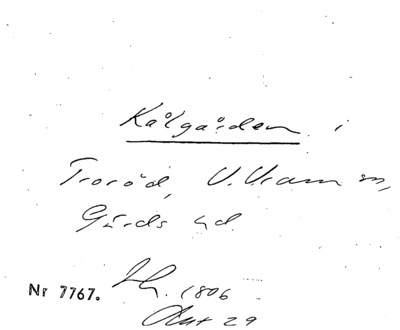 Kålgården i
Troröd, V. Vram sn,
Gärds hd.
Nr 7767. 1806
29